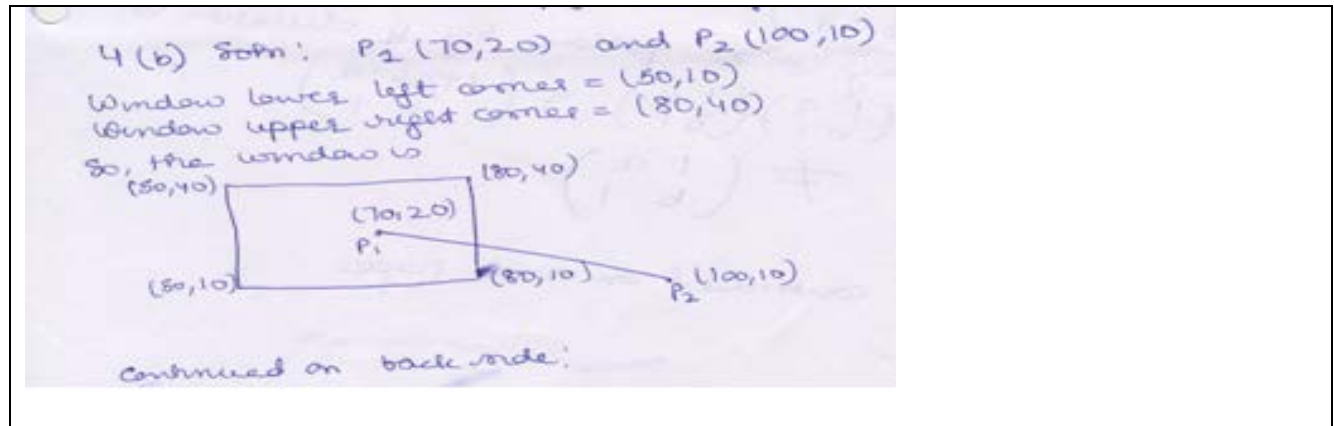 4 (b) Soln: P1 (70,20) and P2 (100,10)
Window lower left corner = (50,10)
Window upper right corner = (80,40)
So, the window is
(50,40) (80,40)
(70,20)
P1
(50,10) (80,10) P2 (100,10)
continued on back side: